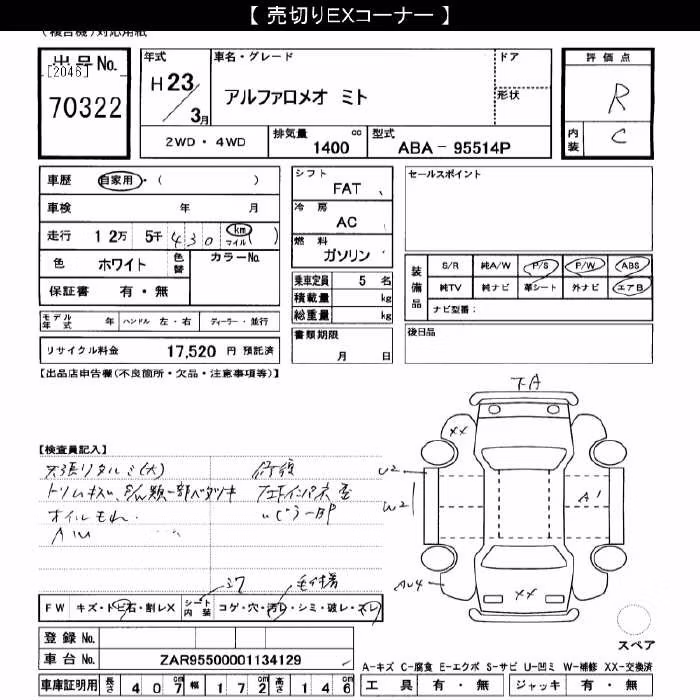 【 売切りEXコーナー 】
(複合機)対応用紙
出品No.
[2046]
70322
年式
H23/3月
車名・グレード
アルファロメオ ミト
ドア
形状
2WD・4WD
排気量 cc
1400
型式
ABA-95514P
評価点
R
内装
C
車歴 自家用・( )
車検 年 月
走行 12万 5千 430 km マイル ( )
色 ホワイト 色替 カラーNo.
保証書 有・無
モデル年式 年 ハンドル 左・右 ディーラー・並行
リサイクル料金 17,520 円 預託済
シフト
FAT
冷房
AC
燃料
ガソリン
乗車定員 5 名
積載量 kg
総重量 kg
書類期限
月 日
セールスポイント
装備品
S/R 純A/W P/S P/W ABS
純TV 純ナビ 革シート 外ナビ エアB
ナビ型番:
後日品
【出品店申告欄(不良箇所・欠品・注意事項等)】
【検査員記入】
天張りタルミ(大)
オイルもれ
FW キズ・トビ石・割レX シート内装 コゲ・穴・汚レ・シミ・破レ・スレ
登録No.
車台No. ZAR95500001134129
車庫証明用 長さ 407cm 幅 172cm 高さ 146cm
下A
XX
U2
W2
A1
XX
スペア
A-キズ C-腐食 E-エクボ S-サビ U-凹ミ W-補修 XX-交換済
工具 有・無 ジャッキ 有・無